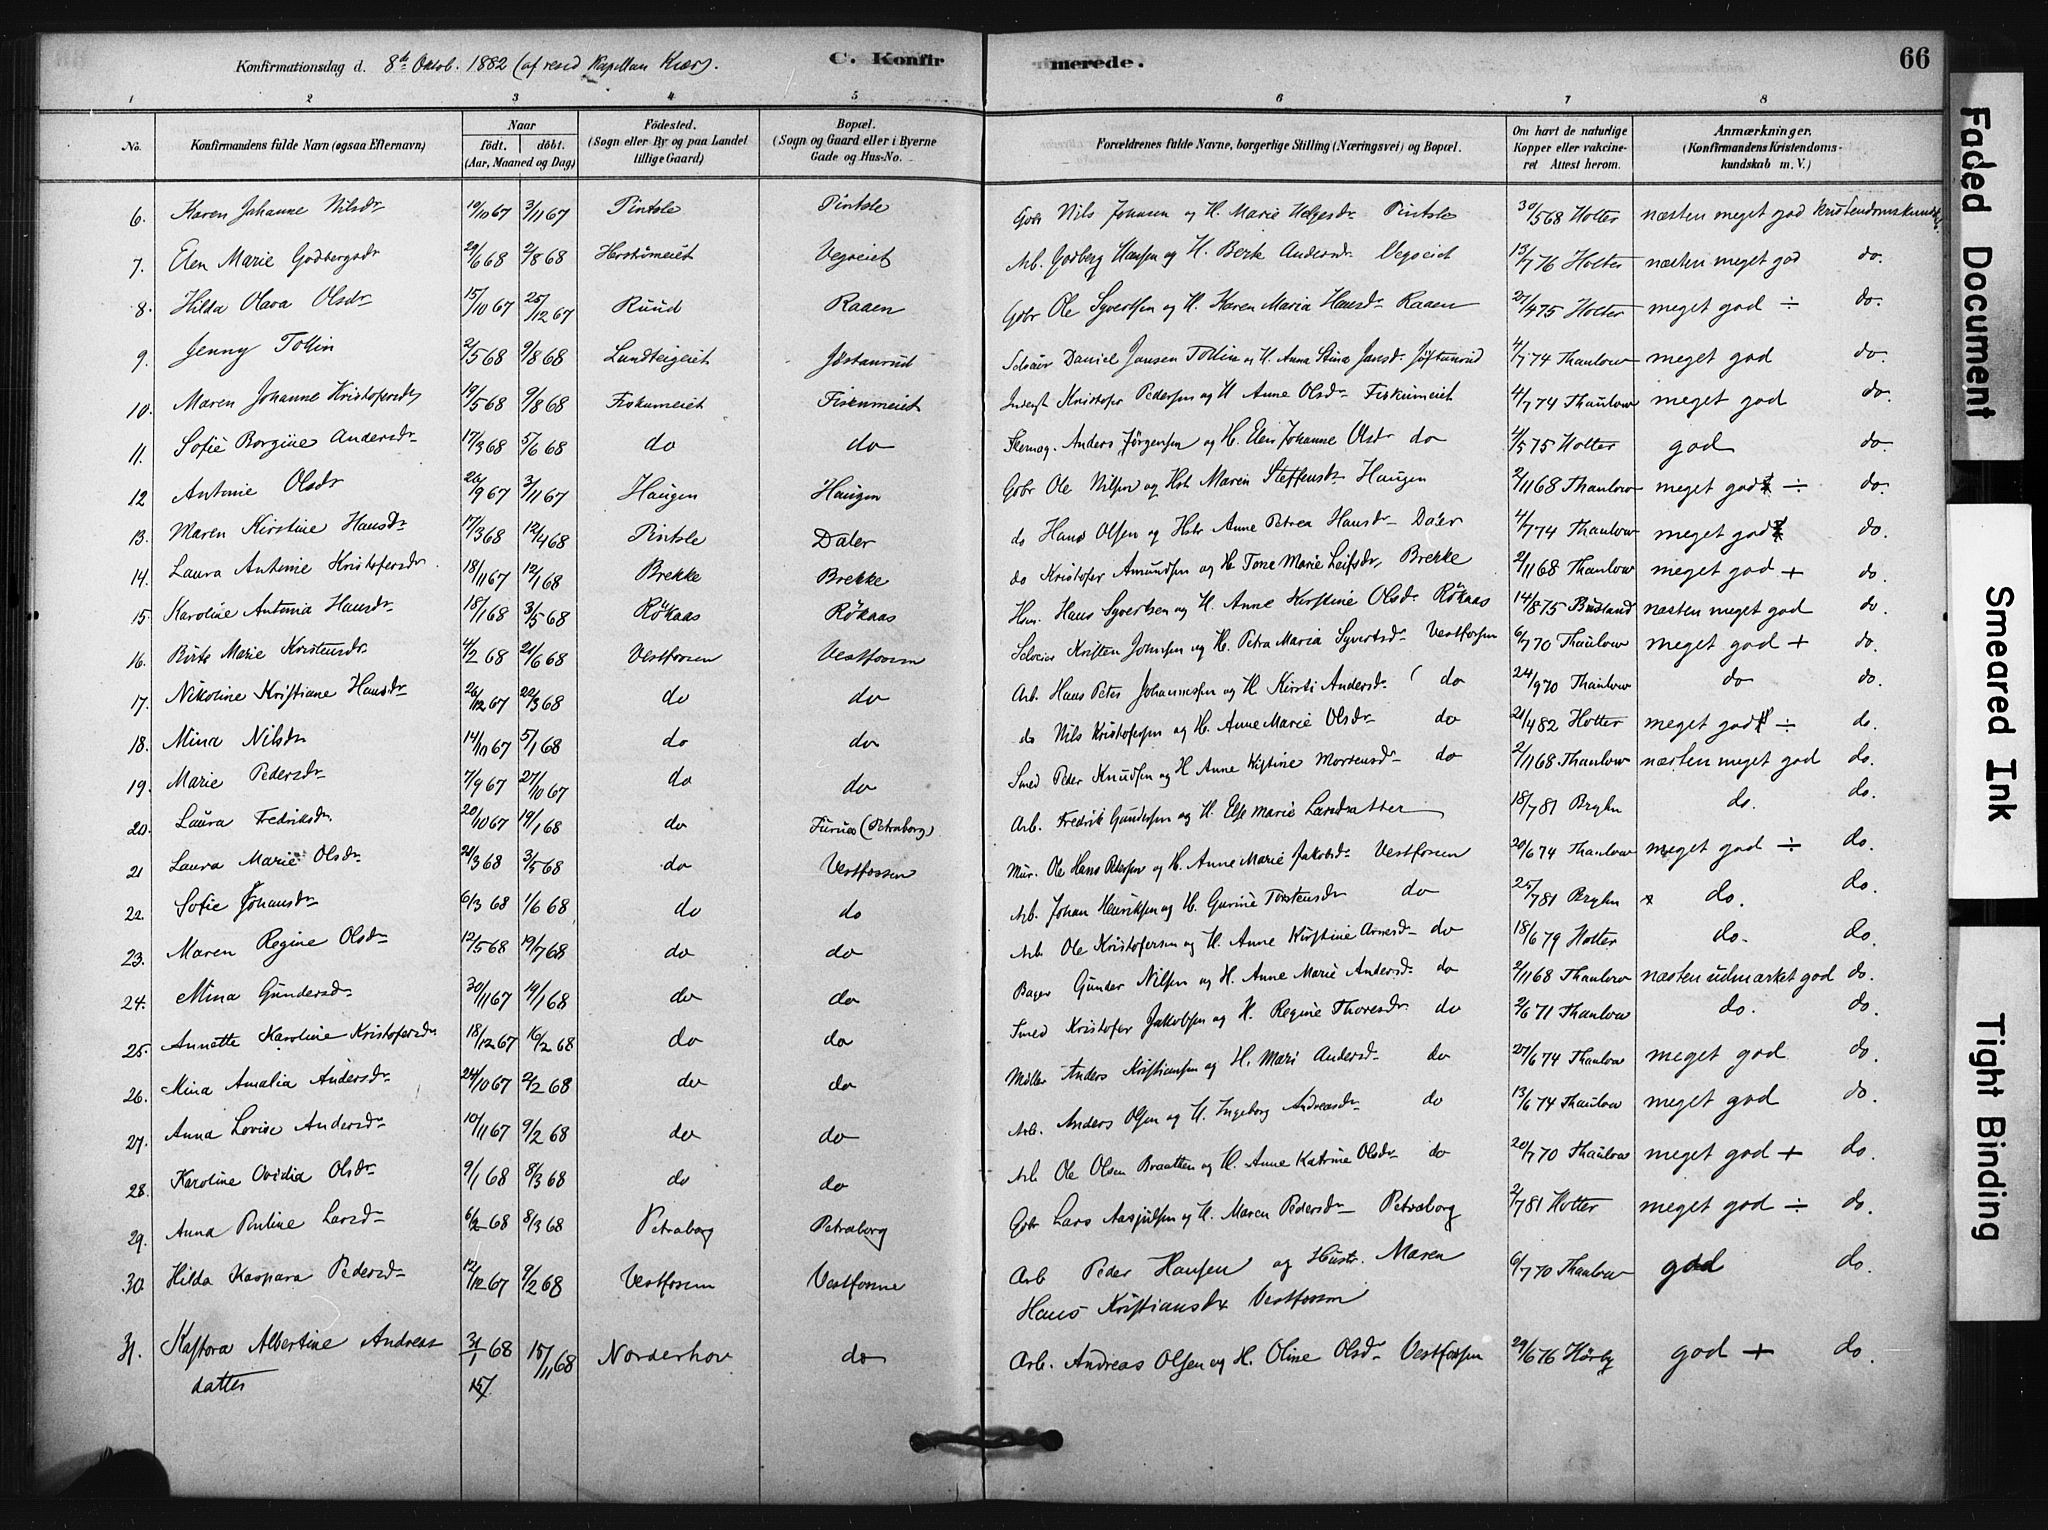 Konfirmationsdag d. 8de Octob. 1882 (af resid Kapellan Kiær). C. Konfirmerede. 66
1 2 3 4 5 6 7 8
No. Konfirmandens fulde Navn (ogsaa Efternavn) Naar født. døbt. (Aar, Maaned og Dag) Fødested. (Sogn eller By og paa Landet tillige Gaard) Bopæl. (Sogn og Gaard eller i Byerne Gade og Hus-No. Forældrenes fulde Navne, borgerlige Stilling (Næringsvei) og Bopæl. Om havt de naturlige Kopper eller vakcineret Attest herom. Anmærkninger. (Konfirmandens Kristendomskundskab m. V.)
6. Karen Johanne Nilsdr 19/10 67 3/11 67 Pintsle Pintsle Gbr Nils Johnsen og H. Marie Helgesdr Pintsle 30/5 68 Holter næsten meget god Kristendomskundsk.
7. Elen Marie Godbergsdr 29/6 68 2/8 68 Vegseiet Arb. Godberg Hansen og H. Berte Andersdr Vegseiet 13/7 76 Holter næsten meget god do.
8. Hilda Olava Olsdr 15/10 67 25/12 67 Ruud Raaen Gbr Ole Syvertsen og H. Karen Maria Hansdr Raaen 27/4 75 Holter meget god ÷ do.
9. Jenny Tollin 2/5 68 9/8 68 Lundteigeiet Jostanrud Daniel Jansen Tollin og H. Anna Stina Jansdr 4/7 74 Thaulow meget god do.
10. Maren Johanne Kristofersdr 19/5 68 9/8 68 Fiskumeiet Fiskumeiet Inderst Kristofer Pedersen og H Anne Olsdr Fiskumeiet 4/7 74 Thaulow meget god do.
11. Sofie Borgine Andersdr 17/3 68 5/6 68 do do Skomag. Anders Jørgensen og H. Elen Johanne Olsdr do 4/5 75 Holter god do
12 Antonie Olsdr 20/9 67 3/11 67 Haugen Haugen Gbr Ole Nilsen og Hst Maren Steffensdr Haugen 2/11 68 Thaulow meget god ÷ do.
13. Maren Kirstine Hansdr 17/3 68 12/4 68 Pintsle Daler do Hans Olsen og Hstr Anne Petrea Hansdr Daler 4/7 74 Thaulow meget god do.
14. Laura Antonie Kristofersdr. 18/11 67 12/1 68 Brekke Brekke do Kristofer Amundsen og H. Tone Marie Leifsdr, Brekke 2/11 68 Thaulow meget god + do.
15. Karoline Antonia Hansdr 18/1 68 3/5 68 Rökaas Rökaas Hsm. Hans Syvertsen og H. Anne Kirstine Olsdr Rökaas 14/8 75 Bustand næsten meget god do.
16. Birte Marie Kristensdr 4/2 68 21/6 68 Vestfossen Vestfossen Selveier Kristen Johnsen og H. Petra Maria Syvertsdr Vestfossen 6/7 70 Thaulow meget god + do.
17. Nikoline Kristiane Hansdr 26/12 67 22/3 68 do do Arb. Hans Peter Johannessen og H. Kirsti Andersdr do 24/9 70 Thaulow do do.
18. Mina Nilsdr 14/10 67 5/1 68 do do do Nils Kristofersen og H. Anne Marie Olsdr do 21/4 82 Holter meget god ÷ do.
19. Marie Pedersdr 7/9 67 27/10 67 do do Smed Peder Knudsen og H Anne Kistine Mortensdr do 2/11 68 Thaulow næsten meget god do.
20. Laura Fredriksdr. 20/10 67 19/1 68 do Furuas (Petraborg) Arb. Fredrik Gundersen og H. Else Marie Larsdatter 18/7 81 Bryhn do. do.
21 Laura Marie Olsdr 21/3 68 3/5 68 do Vestfossen Mur. Ole Hans Petersen og H. Anne Marie Jakobsdr Vestfossen 20/6 74 Thaulow meget god ÷ do.
22. Sofie Johansdr 6/3 68 1/6 68 do do Arb. Johan Henriksen og H. Gurine Torstensdr do 25/7 81 Bryhn do. do.
23. Maren Regine Olsdr 12/5 68 19/7 68 do do Arb. Ole Kristofersen og H. Anne Kirstine Arnesdr do 18/6 79 Holter do. do.
24. Mina Gundersdr 30/11 67 19/1 68 do do Bager Gunder Nilsen og H. Anne Marie Andersdr. do 2/11 68 Thaulow næsten udmærket god do.
25. Annette Karoline Kristofersdr 18/12 67 16/2 68 do do Smed Kristofer Jakobsen og H. Regine Thoresdr do 2/6 71 Thaulow do. do.
26. Mina Amalia Andersdr 24/10 67 2/2 68 do do Møller Anders Kristiansen og H. Mari Andersdr do 27/6 74 Thaulow meget god do.
27. Anna Lovise Andersdr 10/11 67 9/2 68 do do Arb. Anders Olsen og H. Ingeborg Andreasdr do 13/6 74 Thaulow meget god do.
28. Karoline Ovidia Olsdr 9/1 68 8/3 68 do do Arb Ole Olsen Braatten og H. Anne Katrine Olsdr do 20/7 70 Thaulow meget god + do.
29. Anna Pauline Larsdr 6/2 68 8/3 68 Petraborg Petraborg Gbr Lars Aasjulsen og H. Maren Pedersdr Petraborg 2/7 81 Holter meget god ÷ do.
30. Hilda Kaspara Pedersdr 12/12 67 9/2 68 Vestfossen Vestfossene Arb Peder Hansen og Hustr. Maren 6/7 70 Thaulow god do.
Hans Kristiansdr Vestfossen
31. Kastora Albertine Andreas 31/1 68 15/11 68 Norderhov do Arb. Andreas Olsen og H. Oline Olsdr Vestfossen 29/6 76 Hørby god + do.
datter 15/
Faded Document
Smeared Ink
Tight Binding